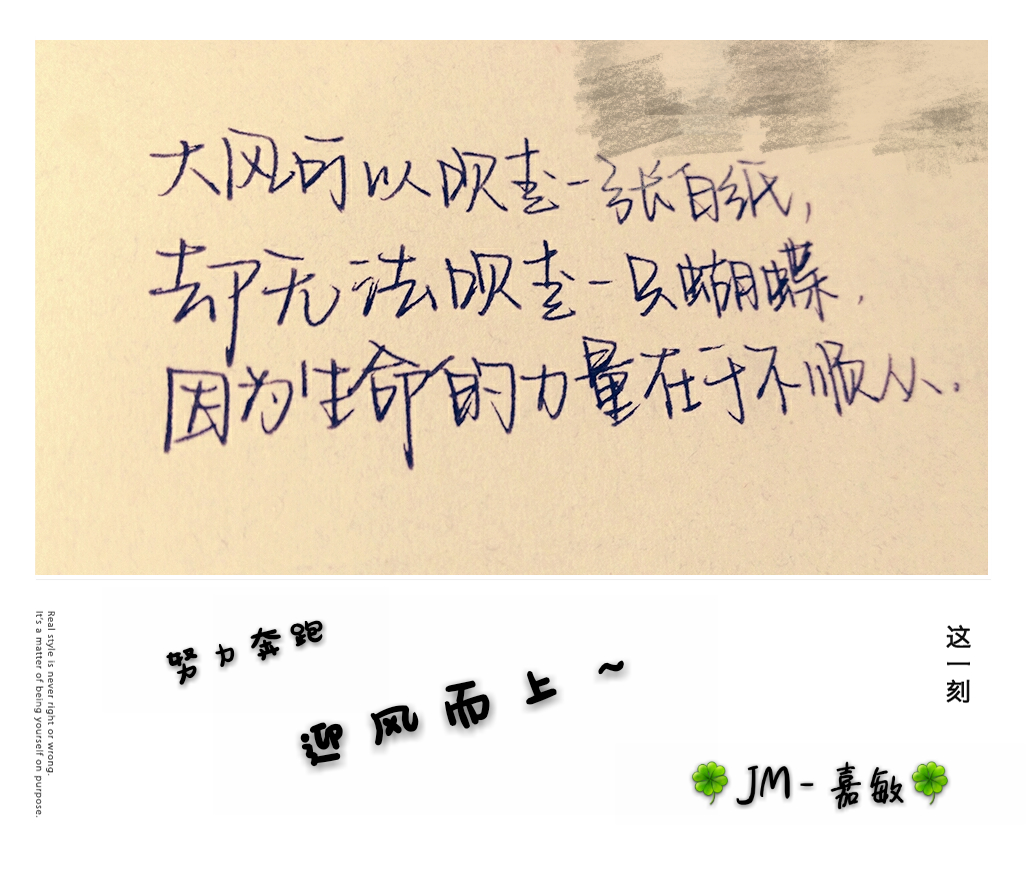 大风可以吹走一张白纸，
却无法吹走一只蝴蝶，
因为生命的力量在于不顺从.
Real style is never right or wrong.
It's a matter of being yourself on purpose.
努力奔跑
迎风而上~
这一刻
JM-嘉敏